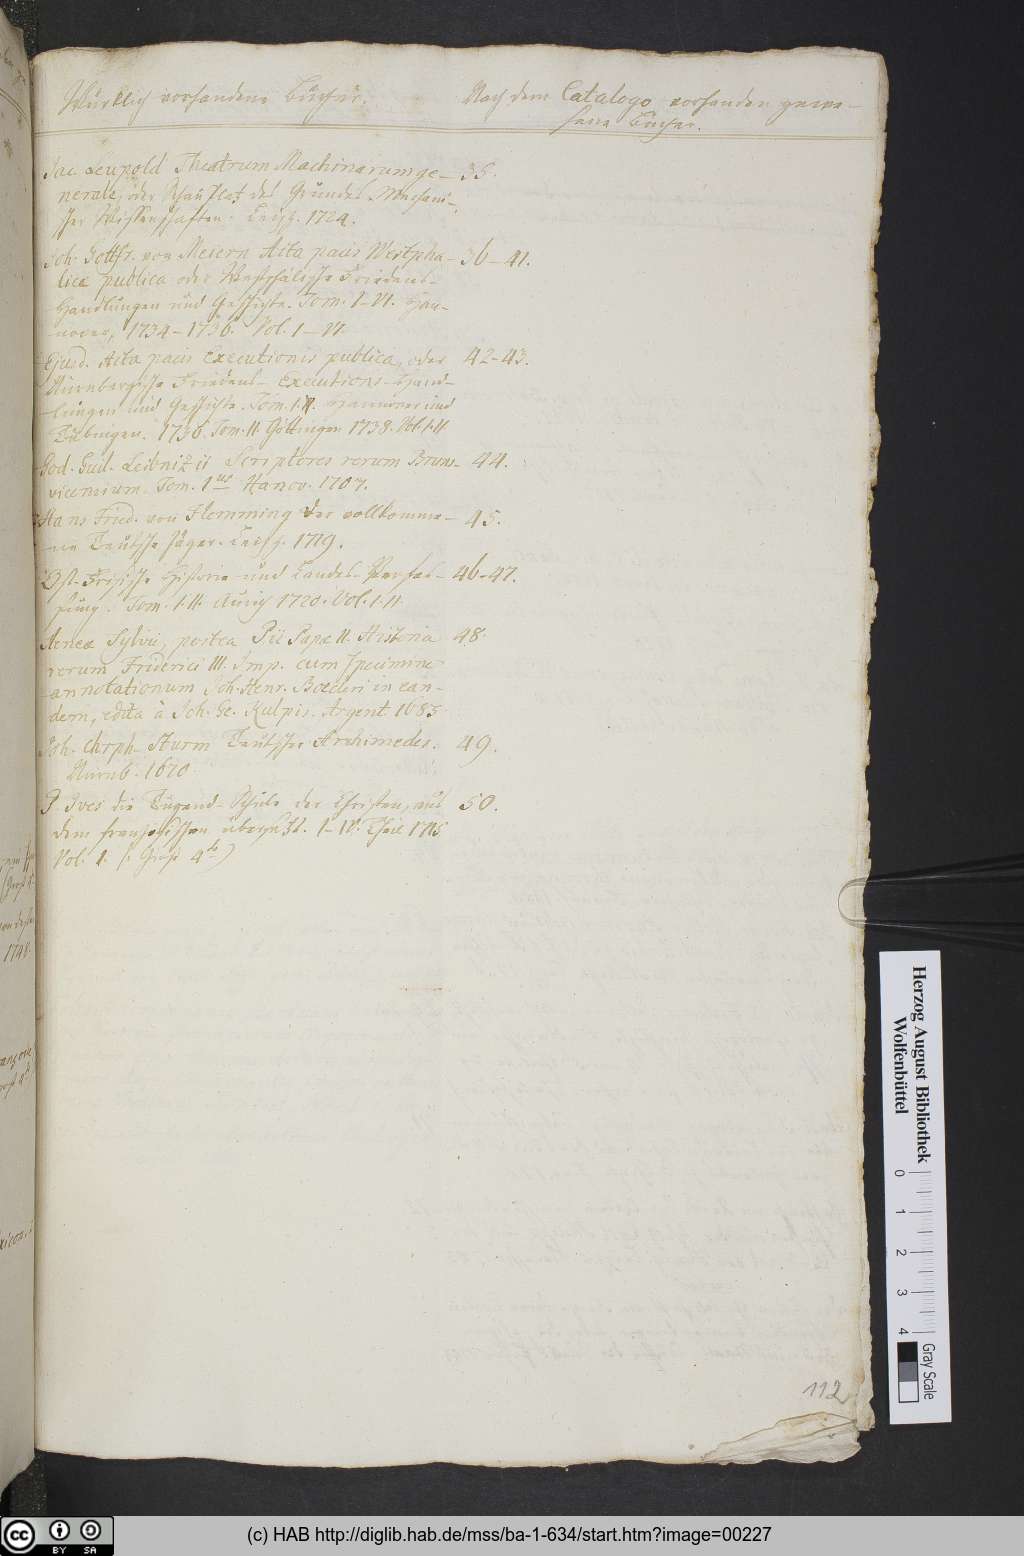 Würklich vorhandene Bücher.
Nach dem Catalogo vorhanden gewe-
sene Bücher.
Jac. Leupold Theatrum Machinarum ge- 35.
nerale, oder Schau Platz des Grundes Mechani-
scher Wissenschafften. Leipz. 1724.
Joh. Gottfr. von Meiern Acta pacis Westpha- 36-41.
licæ publica oder Westphälische Friedens-
Handlungen und Geschichte. Tom. I-VI. Han-
nover, 1734-1736. Vol. 1-VI.
Ejusd. Acta pacis Executionis publica, oder 42-43.
Nürnbergische Friedens- Executions- Hand-
lungen und Geschichte. Tom. I. II. Hannover und
Tübingen. 1736. Tom. II. Göttingen 1738. Vol. I. II
God. Guil. Leibnizii Scriptores rerum Bruns- 44.
vicensium. Tom. 1us Hanov. 1707.
Hans Fried. von Flemming der vollkomme- 45.
ne Teutsche Jäger. Leipz. 1719.
Ost-Frisische Historie und Landes-Verfas- 46-47.
sung. Tom. I. II. Aurich 1720. Vol. I. II
Aeneæ Sylvii, postea Pii Papæ II. Historia 48.
rerum Friderici III. Imp. cum specimine
annotationum Joh. Henr. Boecleri in ean-
dem, edita à Joh. Ge. Kulpis. Argent. 1685
Joh. Chrph. Sturm Teutscher Archimedes. 49.
Nürnb. 1670
P. Ives die Tugend-Schule der Christen, aus 50.
dem französischen übersetzt. I-IV. Theil 1715
Vol. 1. (: Groß 4to)
1748.
112
Herzog August Bibliothek
Wolfenbüttel
0 1 2 3 4
Gray Scale
cc BY SA
(c) HAB http://diglib.hab.de/mss/ba-1-634/start.htm?image=00227